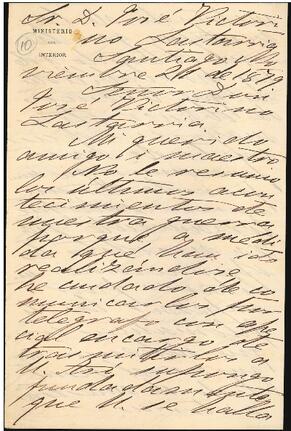 Sr. D. José Victori
no Lastarria
10
MINISTERIO
DEL
INTERIOR
Santiago No
viembre 26 de 1879
Señor Don
José Victorino
Lastarria.
Mi querido
amigo i maestro
No le resumo
los últimos acon
tecimientos de
nuestra guerra
porque a medi
da que han ido
realizándose
he cuidado de co
municarlos por
telégrafo con
encargo de
trasmitirlos a
U. Así supongo
fundadamente
que U. se halla